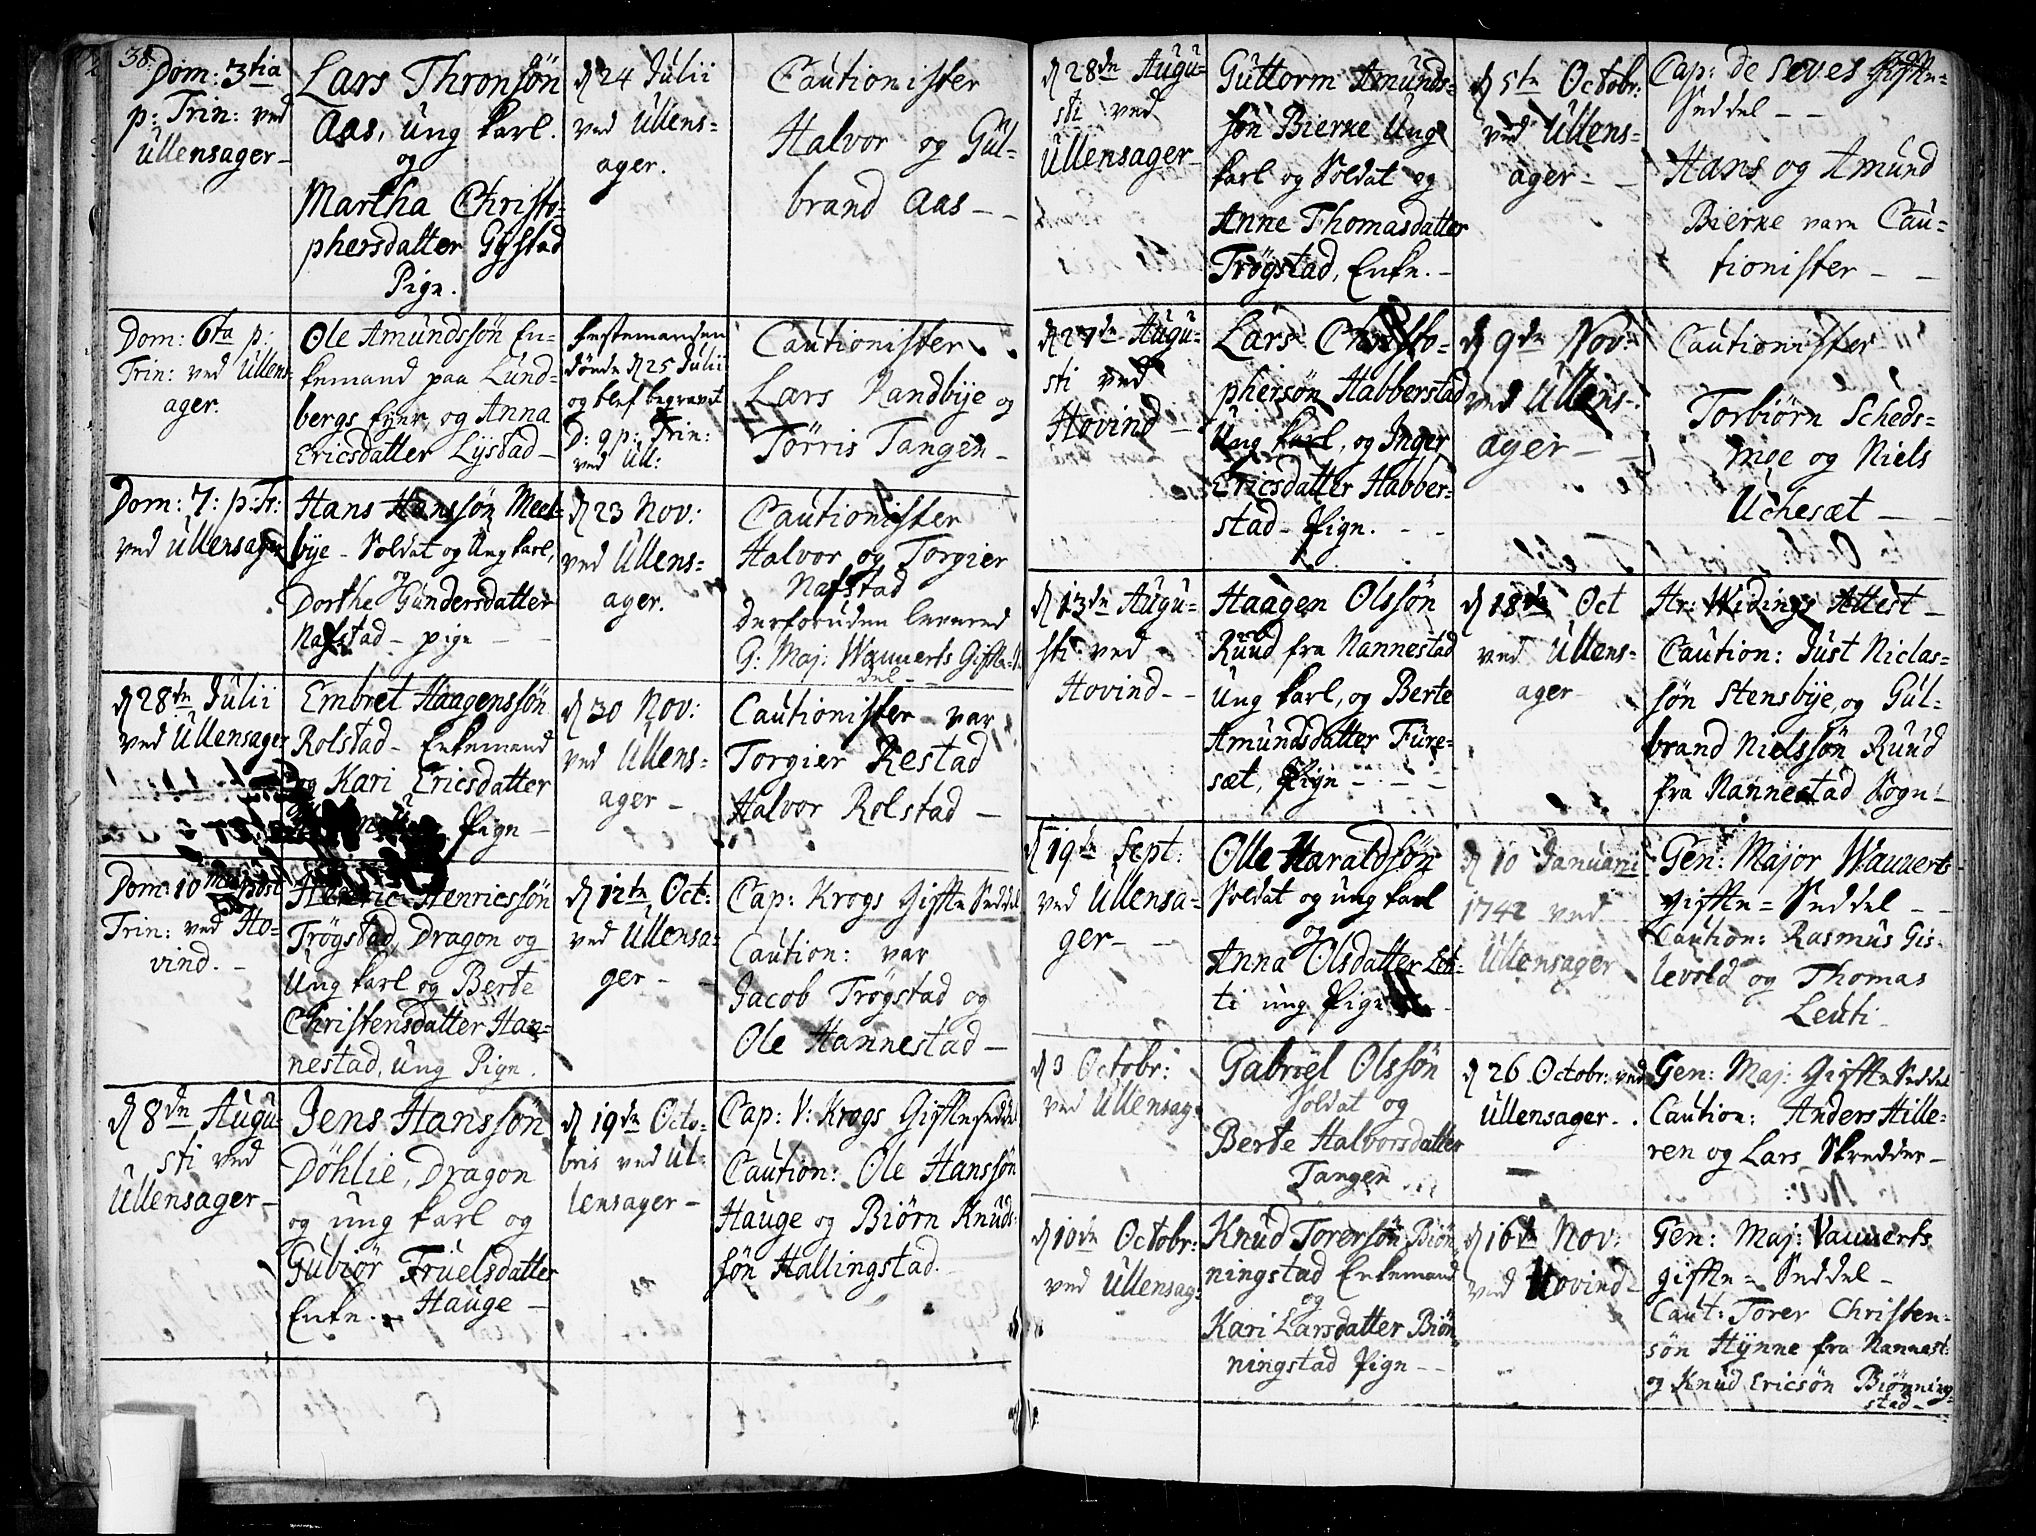 38.
Dom: 3tia
p: Trin: ved
Ullensager –
Lars Thronsøn
Aas, ung karl.
og
Martha Christo-
phersdatter Gystad
Pige.
d 24 Julii
ved Ullens-
ager.
Cautionister
Halvor og Gul-
brand Aas – –
Dom: 6ta p:
Trin: ved Ullens-
ager.
Ole Amundssøn En-
kemand paa Lund-
bergs Eyer, og Anna
Ericsdatter Lystad –
Festemanden
døde d 25 Julii
og blef begravet
D: 9 p: Trin:
ved Ull:
Cautionister
Lars Randbÿe og
Tørris Tangen –
Dom: 7: p: Tr:
ved Ullensager
Hans Hanssøn Meel-
bÿe – Soldat og Ung karl,
og
Dorthe Gundersdatter
Nafstad – pige – –
d 23 Nov:
ved Ullens-
ager.
Cautionister
Halvor og Torgier
Nafstad
derforuden levered
G: Maj: Wauverts Giftesed-
del –
d 28de Julii
ved Ullensager
Embret Haagenssøn
Rolstad – Enkemand
og Kari Ericsdatter
Pige –
d 30 Nov:
ved Ullens-
ager –
Cautionister var
Torgier Restad
Halvor Rolstad –
Dom: 10 post
Trin: ved Ho-
vind. –
Henric Henricssøn
Trøgstad, Dragon og
Ung karl og Berte
Christensdatter Han-
nestad, ung Pige.
d 12te Oct:
ved Ullensa-
ger – –
Cap: Krogs Gifte Seddel
Caution: var
Jacob Trøgstad og
Ole Hannestad –
d 8de Augu-
sti ved
Ullensager –
Jens Hanssøn
Döhlie, Dragon
og ung karl og
Gubiør Truelsdatter
Enke. – Hauge –
d 19de Octo-
bris ved Ul-
lensager –
Cap: V: Krogs Gifteseddel
Caution: Ole Hanssøn
Hauge og Biørn Knuds-
søn Hallingstad.
d 28de Augu-
sti ved
Ullensager –
Guttorm Amunds-
søn Bierke Ung
karl og Soldat og
Anne Thomasdatter
Trøgstad, Enke. –
d 5te Octobr:
ved Ullens-
ager – –
Cap: de Seves Gifte-
Seddel – –
Hans og Amund
Bierke vare Cau-
tionister – –
d 27de Augu-
sti ved
Hovind –
Lars Christo-
phersøn Habberstad
Ung karl, og Inger
Ericsdatter Habber-
stad – Pige. – –
d 9de Nov:
ved Ullens-
ager – –
Cautionister
Torbiørn Scheds-
moe og Niels
Uchesæt – –
d 13de Augu-
sti ved
Hovind – –
Haagen Olssøn
Ruud fra Nannestad
Ung karl, og Berte
Amundsdatter Fure-
sæt, Pige – – –
d 18de Oct
ved Ullens-
ager
Hr: Widings Attest –
Caution: Just Niclas-
søn Stensbÿe, og Gul-
brand Nielssøn Ruud
fra Nannestad Sogn –
d 19de Sept:
ved Ullensa-
ger – –
Olle Haraldsøn
Soldat og ung karl
og
Anna Olsdatter Leü-
ti ung Pige
d 10 Januarii
1742 ved
Ullensager
Gen: Major Wauverts
gifte-Seddel –
Caution: Rasmus Gis-
levold og Thomas
Leuti
d 3 Octobr:
ved Ullensag:
Gabriel Olssøn
Soldat og
Berte Halvorsdatter
Tangen
d 26 Octobr: ved
Ullensager.
Gen: Maj: Gifte Seddel
Caution: Anders Hille-
ren og Lars Skredder –
d 10de Octobr:
ved Ullensag:
Knud Torersøn Biøn-
ningstad Enkemand
og
Kari Larsdatter Biøn-
ningstad Pige – –
d 16de Nov:
ved Hovind –
Gen: Maj: Vauverts
gifte-Seddel –
Caut: Torer Christen-
søn Hynne fra Nannest:
og Knud Ericsøn Biønning-
stad –